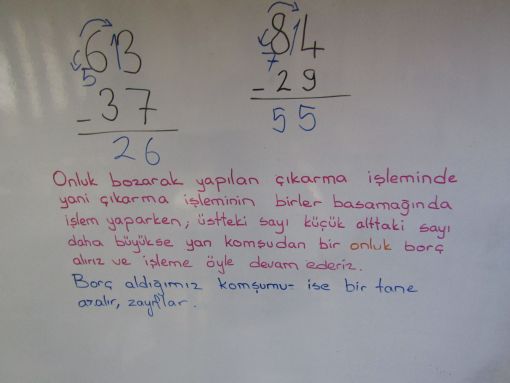 63 84
5 7
- 37 - 29
26 55
Onluk bozarak yapılan çıkarma işleminde
yani çıkarma işleminin birler basamağında
işlem yaparken, üstteki sayı küçük alttaki sayı
daha büyükse yan komşudan bir onluk borç
alırız ve işleme öyle devam ederiz.
Borç aldığımız komşumu- ise bir tane
azalır, zayıflar.